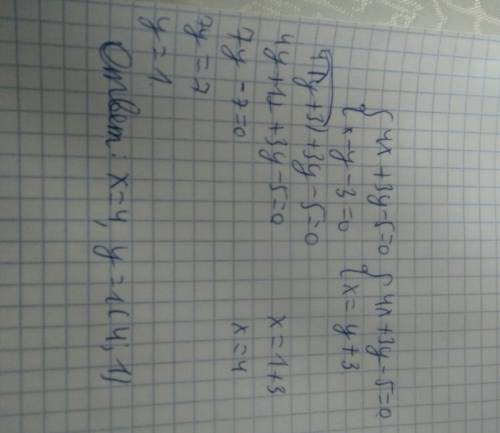 {4x+3y-5=0 {4x+3y-5=0
{x-y-3=0 {x=y+3
4(y+3)+3y-5=0
4y+12+3y-5=0 x=1+3
7y-7=0 x=4
7y=7
y=1.
Ответ: x=4, y=1(4;1)